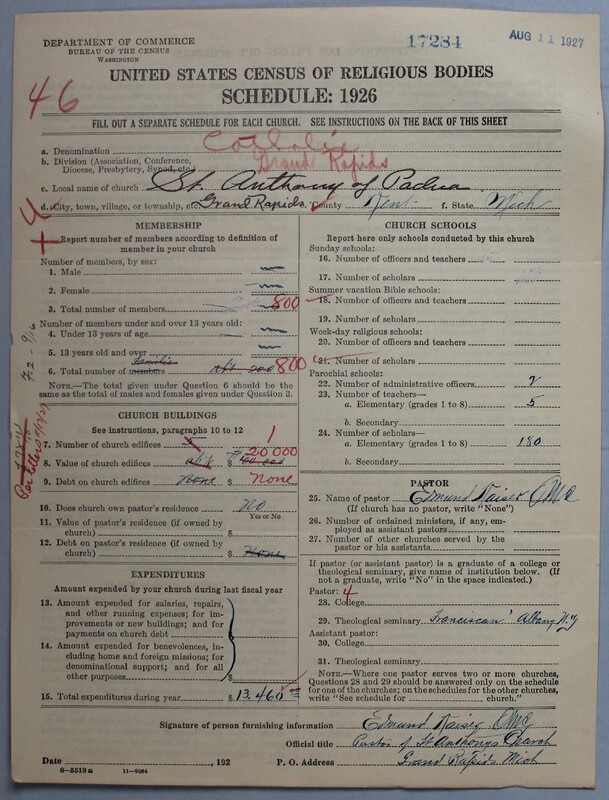 DEPARTMENT OF COMMERCE
BUREAU OF THE CENSUS
WASHINGTON
17284
AUG 11 1927
UNITED STATES CENSUS OF RELIGIOUS BODIES
SCHEDULE: 1926
46
FILL OUT A SEPARATE SCHEDULE FOR EACH CHURCH. SEE INSTRUCTIONS ON THE BACK OF THIS SHEET
a. Denomination Catholic
b. Division (Association, Conference, Diocese, Presbytery, Synod, etc.) Grand Rapids
c. Local name of church St. Anthony of Padua
d. City, town, village, or township, etc. Grand Rapids. County Kent f. State Mich
MEMBERSHIP
Report number of members according to definition of member in your church
Number of members, by sex:
1. Male
2. Female
3. Total number of members 800
Number of members under and over 13 years old:
4. Under 13 years of age
5. 13 years old and over
6. Total number of members families abt 200 800
NOTE.—The total given under Question 6 should be the same as the total of males and females given under Question 3.
CHURCH BUILDINGS
See instructions, paragraphs 10 to 12
7. Number of church edifices 1
8. Value of church edifices abt $ 20 000
9. Debt on church edifices None $ None
10. Does church own pastor's residence No
Yes or No
11. Value of pastor's residence (if owned by church) $
12. Debt on pastor's residence (if owned by church) $ None
EXPENDITURES
Amount expended by your church during last fiscal year
13. Amount expended for salaries, repairs, and other running expenses; for improvements or new buildings; and for payments on church debt $
14. Amount expended for benevolences, including home and foreign missions; for denominational support; and for all other purposes $
15. Total expenditures during year $ 13.460.00
CHURCH SCHOOLS
Report here only schools conducted by this church
Sunday schools:
16. Number of officers and teachers
17. Number of scholars
Summer vacation Bible schools:
18. Number of officers and teachers
19. Number of scholars
Week-day religious schools:
20. Number of officers and teachers
21. Number of scholars
Parochial schools:
22. Number of administrative officers 2
23. Number of teachers—
a. Elementary (grades 1 to 8) 5
b. Secondary
24. Number of scholars—
a. Elementary (grades 1 to 8) 180
b. Secondary
PASTOR
25. Name of pastor Edmund Kaiser OMC
(If church has no pastor, write "None")
26. Number of ordained ministers, if any, employed as assistant pastors
27. Number of other churches served by the pastor or his assistants
If pastor (or assistant pastor) is a graduate of a college or theological seminary, give name of institution below. (If not a graduate, write "No" in the space indicated.)
Pastor: 4
28. College
29. Theological seminary Franciscan Albany N.Y
Assistant pastor:
30. College
31. Theological seminary
NOTE.—Where one pastor serves two or more churches, Questions 28 and 29 should be answered only on the schedule for one of the churches; on the schedules for the other churches, write "See schedule for church."
Signature of person furnishing information Edmund Kaiser OMC
Official title Pastor of St Anthonys Church
Date , 192 P. O. Address Grand Rapids Mich
8—5518 a 11—9864